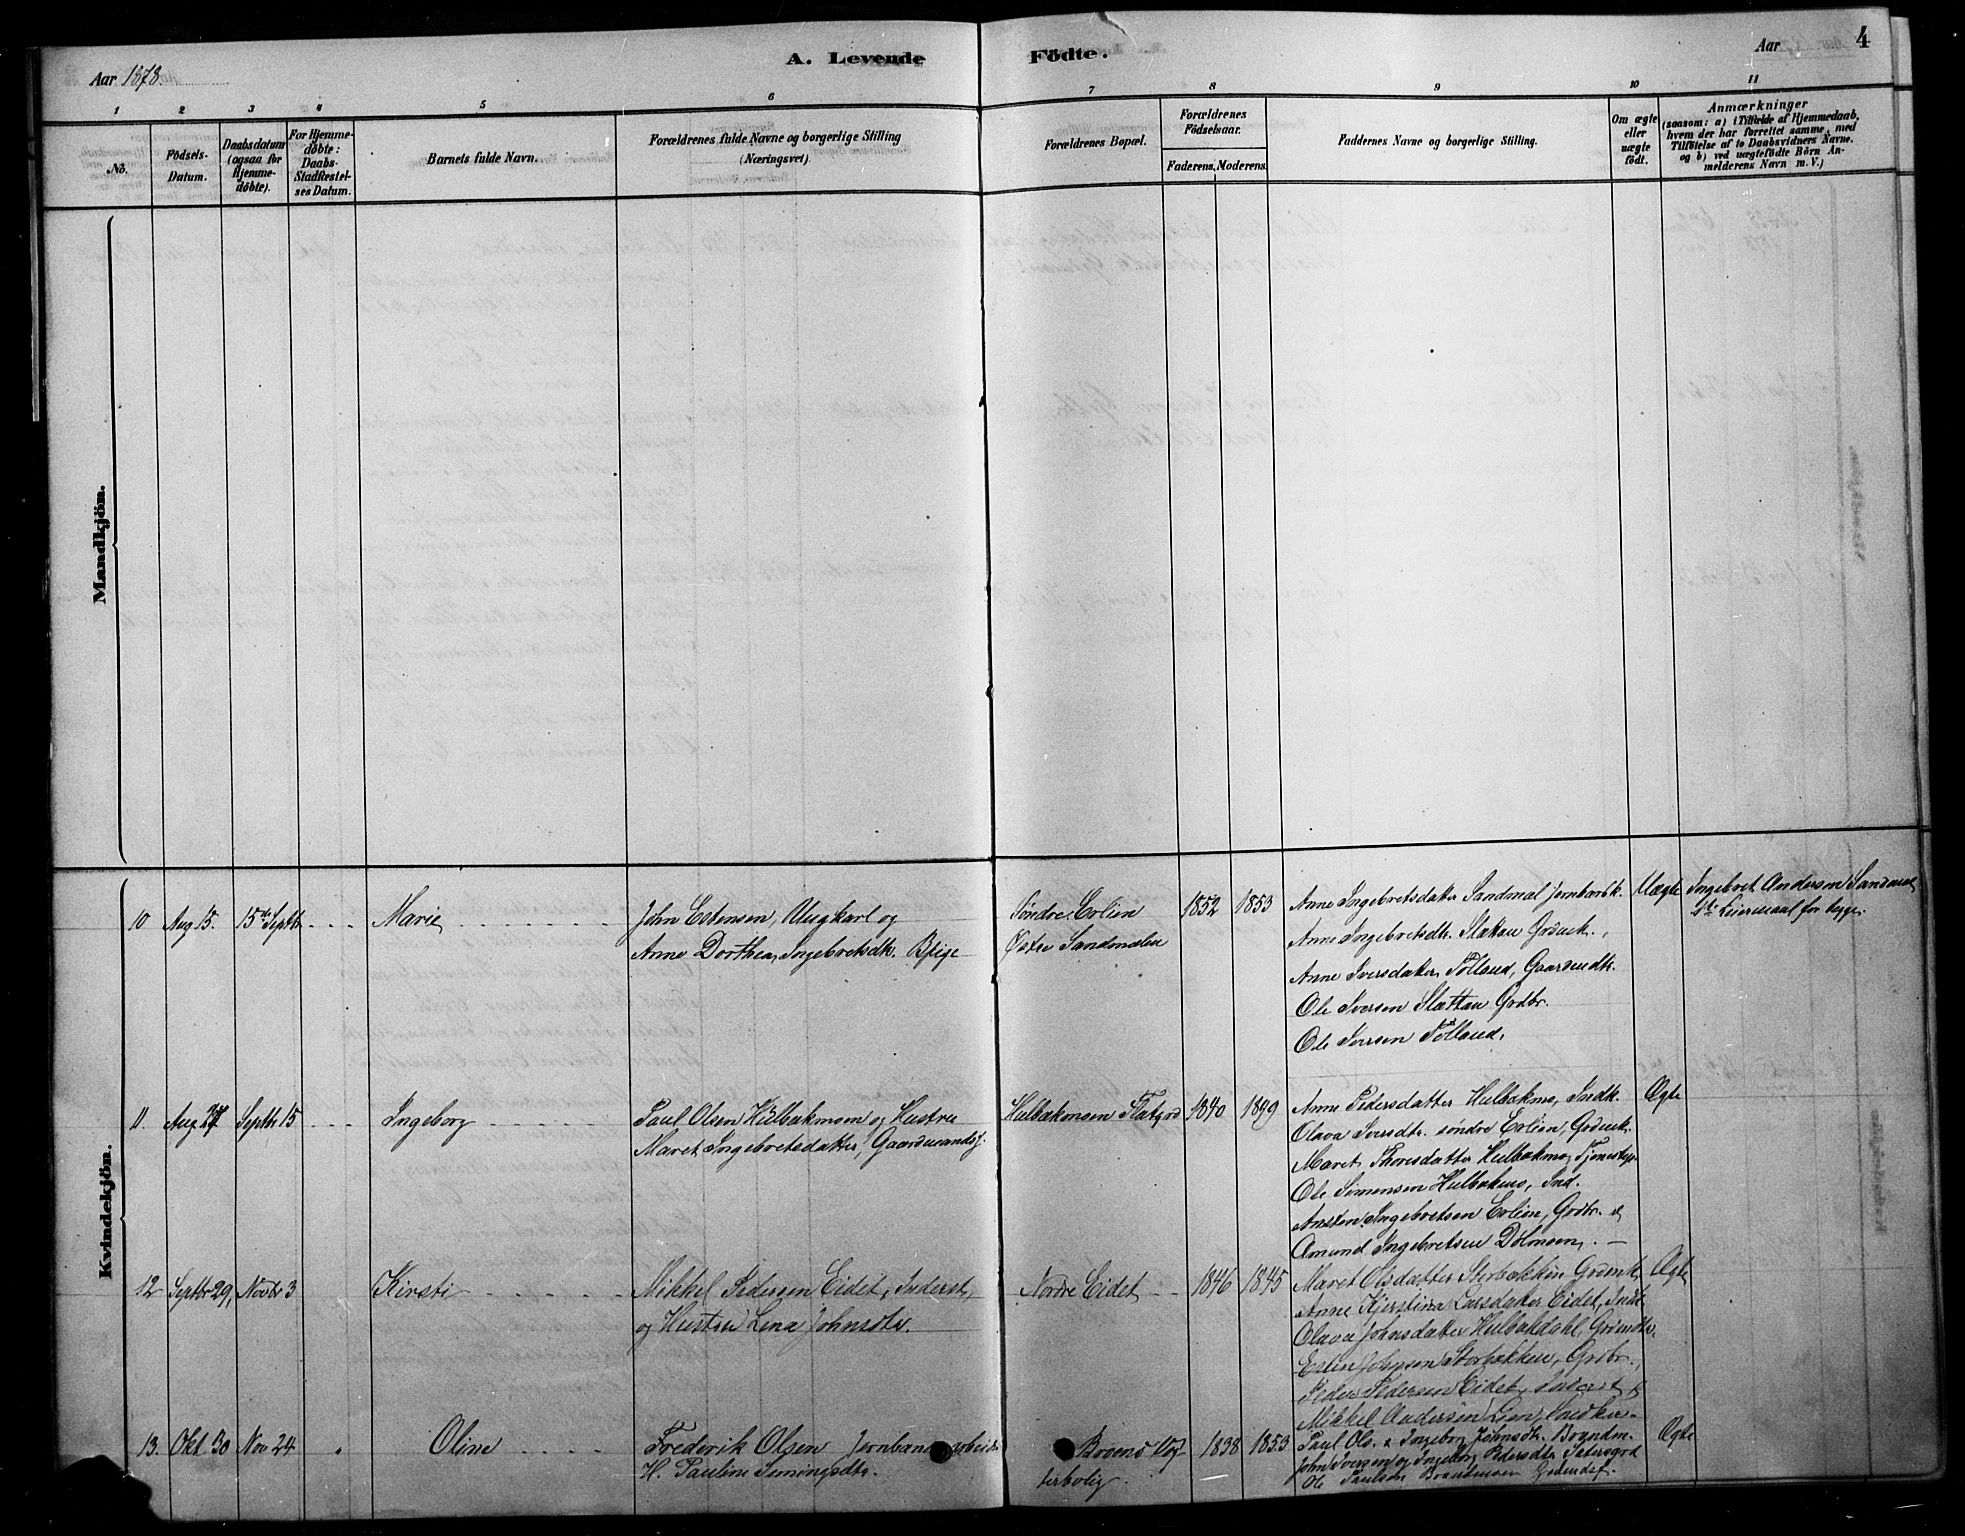 Aar 1878.
A. Levende Födte.
Aar
4
1 2 3 4 5 6 7 8 9 10 11
No.
Födsels-Datum.
Daabsdatum (ogsaa for Hjemme-döbte).
For Hjemme-döbte: Daabs-Stadfæstel-ses Datum.
Barnets fulde Navn.
Forældrenes fulde Navne og borgerlige Stilling (Næringsvei).
Forældrenes Bopæl.
Forældrenes Födselsaar.
Faderens. Moderens.
Faddernes Navne og borgerlige Stilling.
Om ægte eller uægte födt.
Anmærkninger
(saasom: a) i Tilfælde af Hjemmedaab, hvem der har forrettet samme, med Tilföielse af to Daabsvidners Navne. og b) ved uægtefödte Börn An-melderens Navn m. V.)
Mandkjön.
Kvindekjön.
10 Aug 15. 15de Septbr Marie
John Estensen, Ungkarl og
Anne Dorthea Ingebretsdtr. Pige
Søndre Erlien
Østre Sandmælen
1852 1853
Anne Ingebretsdatter Sandmæl
Anne Ingebretsdtr. Slættau
Anne Iversdatter Tolland, Gaardmdtr.
Ole Iversen Slættau Grdbr.
Ole Iversen Tolland,
Uægte
Ingebret Andersen Sandmæl
1ste Leiermaal for begge.
11. Aug 27 Septbr 15 Ingeborg
Paul Olsen Hulbækmoen og Hustru
Maret Ingebretsdatter, Gaardmandsf.
Hulbækmoen
1840 1849
Anne Pedersdatter Hulbækmo, Indk.
Olava Iversdtr. søndre Erlien, Grdmk.
Maret Thoresdatter Hulbækmo,
Ole Simensen Hulbækmo, Ind.
Arnsten Ingebretsen Erlien, Grdbr. &
Amund Ingebretsen Dolmoen. —
Ægte
12 Septbr 29, Novbr 3 Kirsti
Mikkel Pedersen Eidet, Inderst,
og Hustru Lena Johnsdtr.
Nordre Eidet
1846 1845
Maret Olsdatter Storbækken
Anne Kjerstina Larsdatter Eidet,
Olava Johnsdatter Hulbækdahl,
Esten Johnsen Storbækken, Grdbr.,
Peder Pedersen Eidet, Inderst &
Mikkel Andersen Lien, Snedker.
Ægte
13. Okt 30 Nov 24 Oline
Frederik Olsen Jernbanearbeider
H. Pauline Simingsdtr.
Broens Vog-
terbolig.
1838 1853
Paul Ols. & Ingeborg Johnsdtr.
John Iversen og Ingeborg Pedersdtr.
Ole Paulsen
Ægte